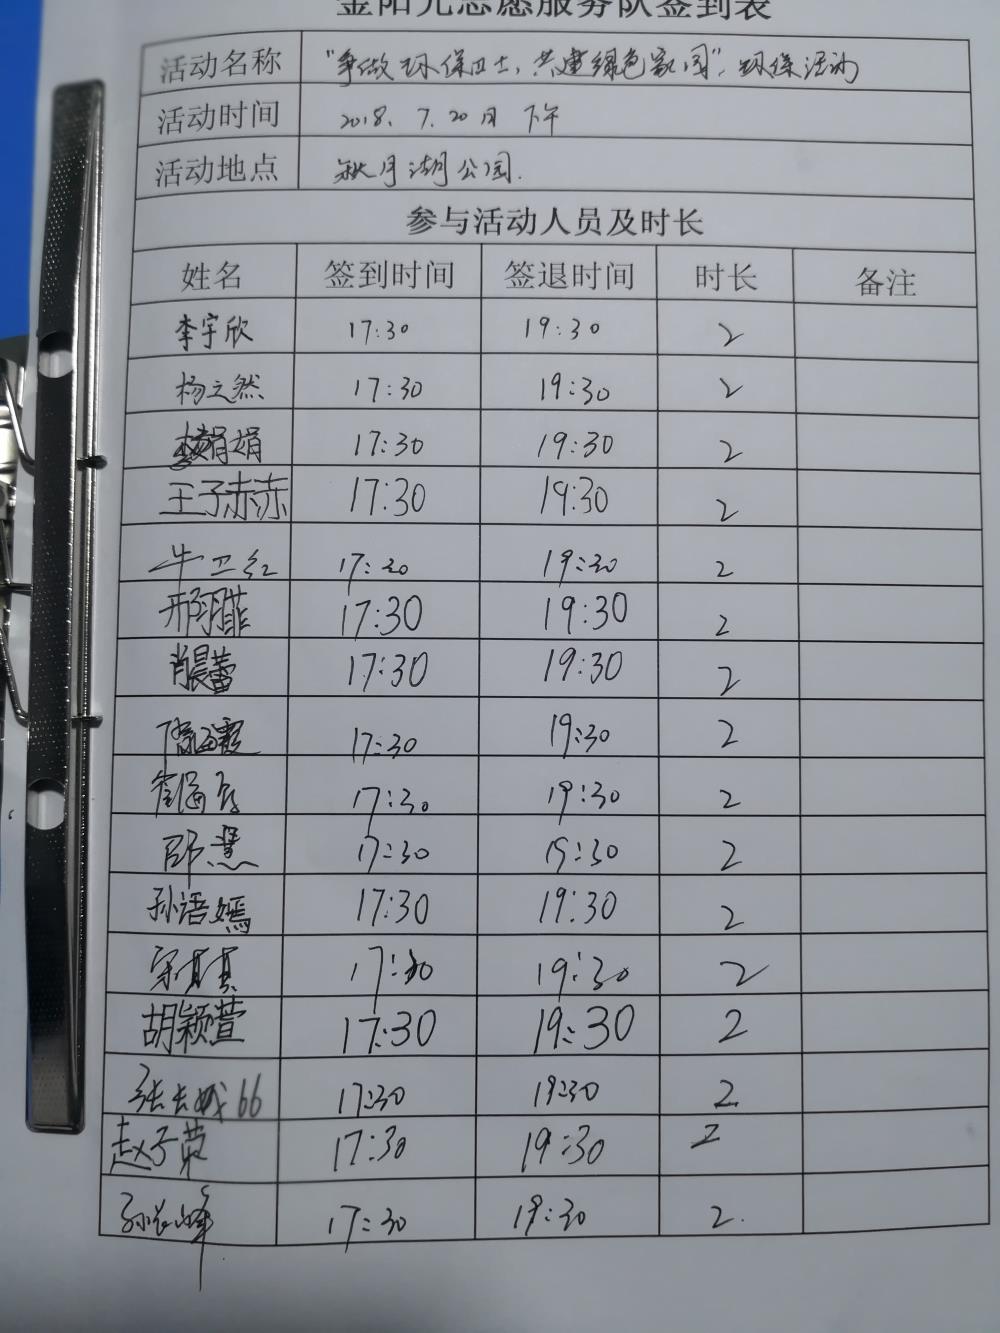 金阳光志愿服务队签到表
活动名称 "争做环保卫士,共建绿色家园"环保活动
活动时间 2018.7.20日 下午
活动地点 秋月湖公园.
参与活动人员及时长
姓名 签到时间 签退时间 时长 备注
李宇欣 17:30 19:30 2
杨之然 17:30 19:30 2
娟娟 17:30 19:30 2
王子赤赤 17:30 19:30 2
牛卫红 17:30 19:30 2
邢 菲 17:30 19:30 2
肖晨蕾 17:30 19:30 2
霞 17:30 19:30 2
17:30 19:30 2
邵慧 17:30 19:30 2
孙语嫣 17:30 19:30 2
宋真真 17:30 19:30 2
胡颖萱 17:30 19:30 2
张长城66 17:30 19:30 2
赵子荣 17:30 19:30 2
孙 峰 17:30 19:30 2.